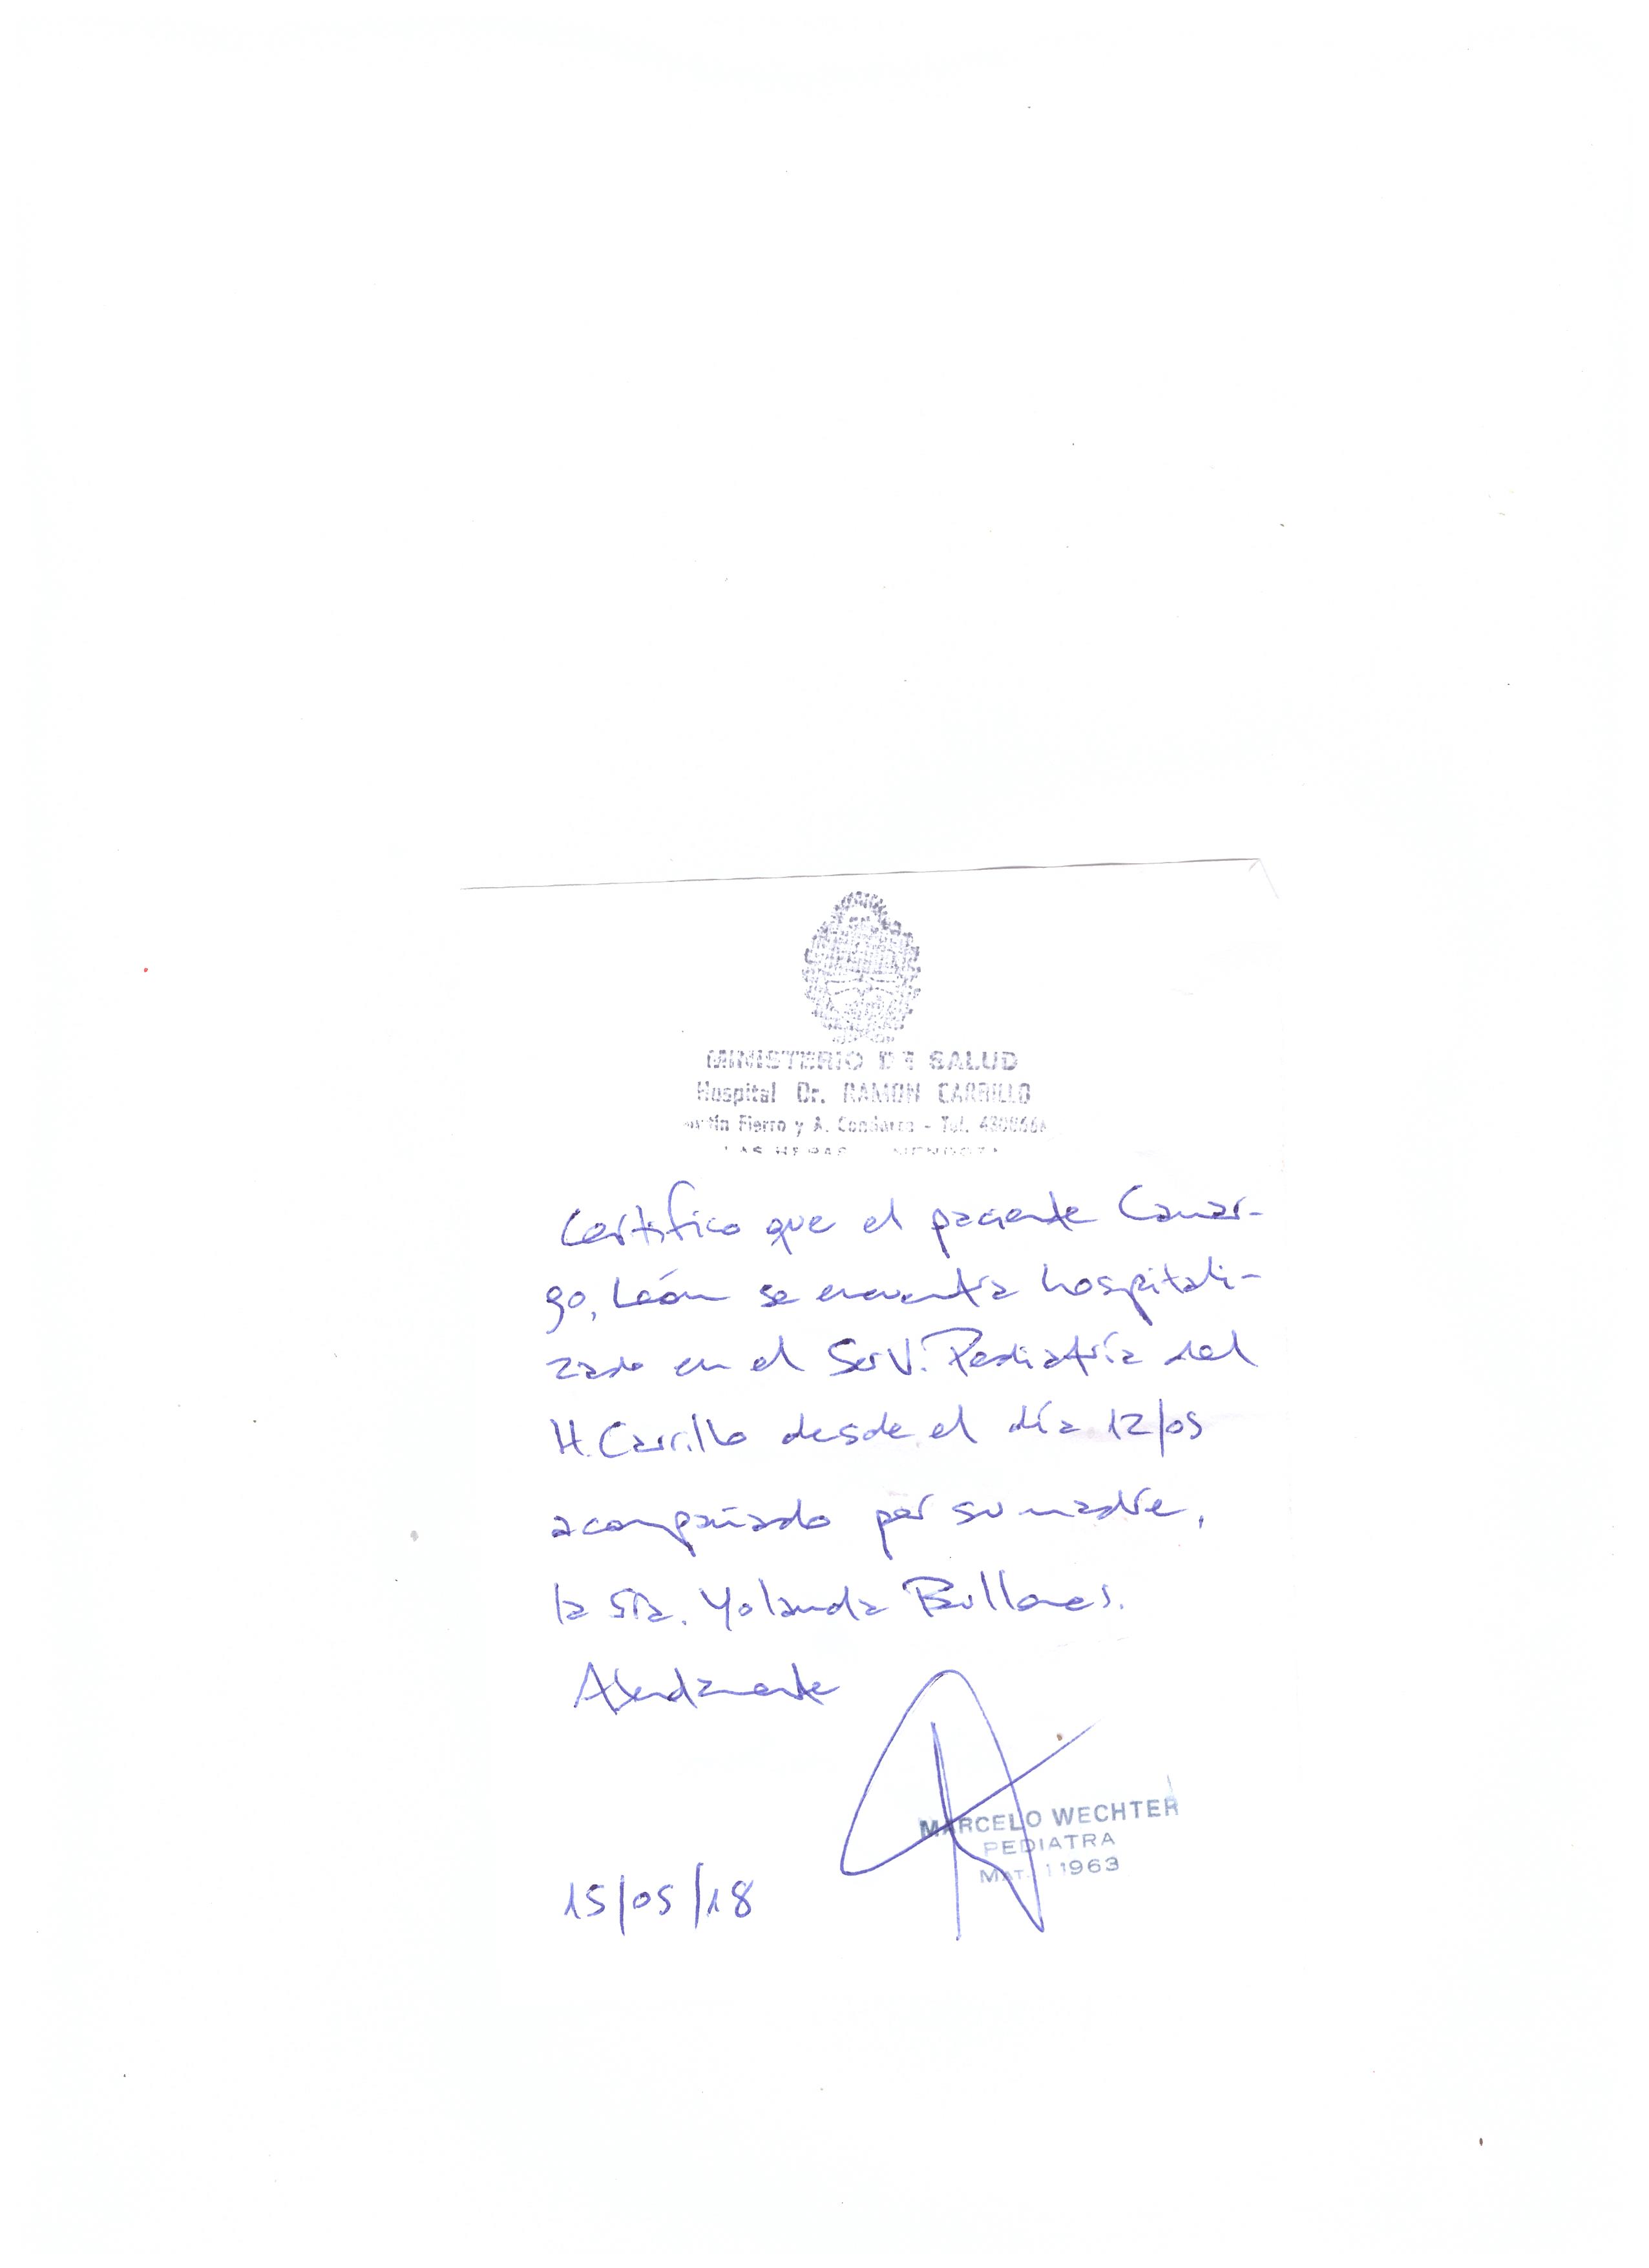 MINISTERIO DE SALUD
Hospital Dr. RAMON CARRILLO
Fierro y A. Condarco - Tel.
LAS HERAS MENDOZA
Certifico que el paciente Camar-
go, León se encuentra hospitali-
zado en el Serv. Pediatría del
H. Carrillo desde el día 12/05
acompañado por su madre,
la Sra. Yolanda Bullones.
Atendamente
MARCELO WECHTER
PEDIATRA
MAT. 11963
15/05/18